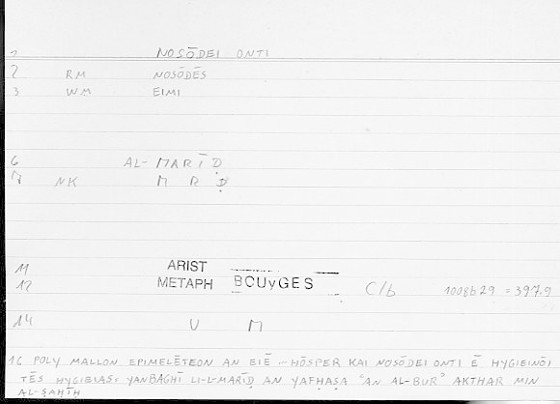 1 NOSŌDEI ONTI
2 RM NOSŌDĒS
3 WM EIMI
6 AL-MARĪḌ
7 NK M R Ḍ
11 ARIST
12 METAPH BOUYGES C/b 1008b29 = 397.9
14 V M
16 POLY MALLON EPIMELĒTEON AN EIĒ - HŌSPER KAI NOSŌDEI ONTI Ē HYGIEINŌI
TĒS HYGIEIAS: YANBAGHĪ LI-L-MARĪḌ AN YAFḤAṢA ʿAN AL-BURʾ AKTHAR MIN
AL-ṢAḤĪḤ